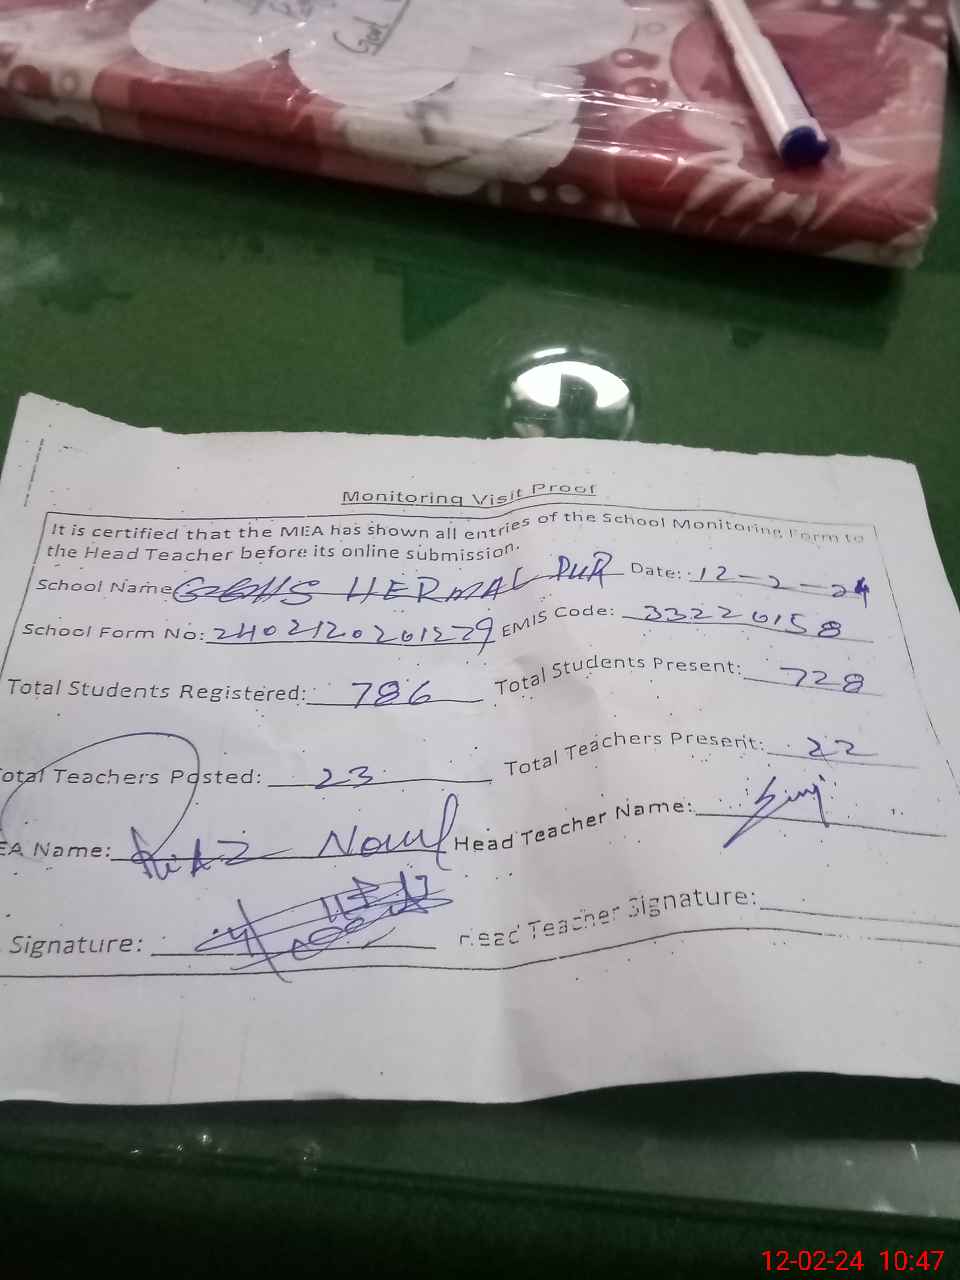 God
Monitoring Visit Proof
It is certified that the MEA has shown all entries of the School Monitoring Form to
the Head Teacher before its online submission.
School Name HERMAL PUR Date: 12-2-24
School Form No: 2402120201229 EMIS Code: 33220158
Total Students Registered: 786 Total Students Present: 728
Total Teachers Posted: 23 Total Teachers Present: 22
EA Name: Head Teacher Name:
Signature: Head Teacher Signature:
12-02-24 10:47